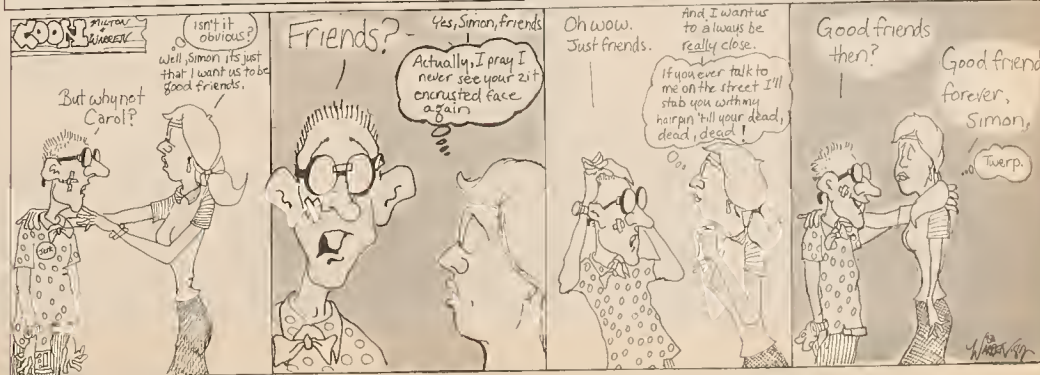 KOON
MILTON
&
WARREN
But why not
Carol?
Isn't it
obvious?
Well, Simon, its just
that I want us to be
good friends.
Friends?
Yes, Simon, friends
Actually, I pray I
never see your zit
encrusted face
again
Oh wow.
Just friends.
And I want us
to always be
really close.
If you ever talk to
me on the street I'll
stab you with my
hairpin 'till your dead,
dead, dead!
Good friends
then?
Good friend
forever,
Simon,
Twerp.
WARREN